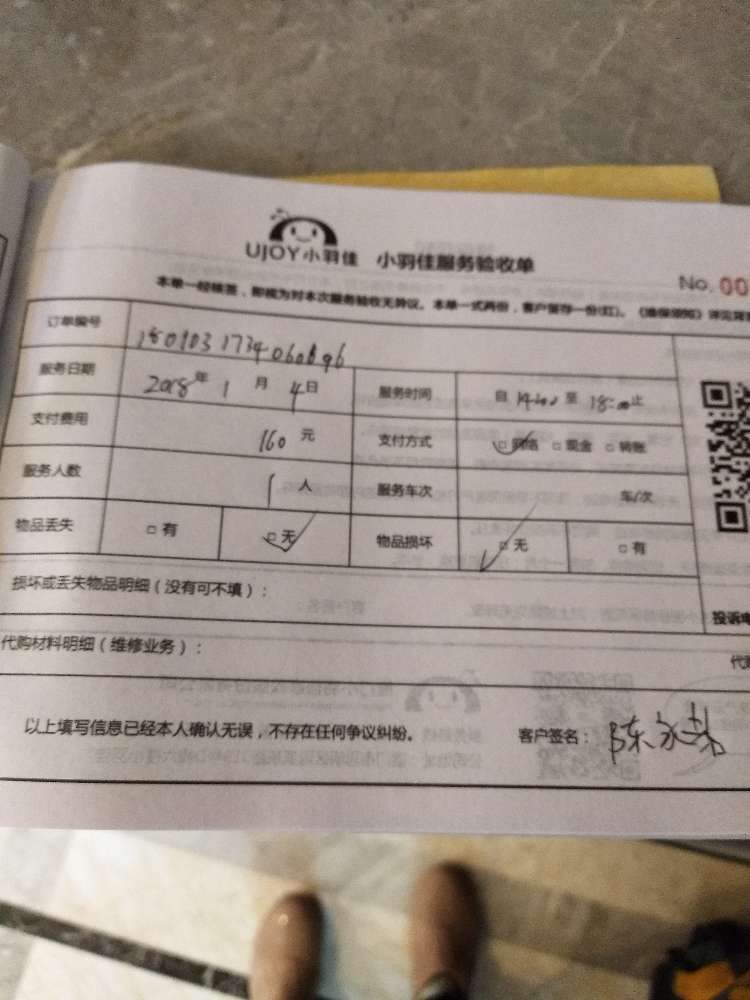 UJOY小羽佳 小羽佳服务验收单
No. 00
本单一经核签，即视为对本次服务验收无异议。本单一式两份，客户留存一份(红)。《维保须知》详见背
订单编号
服务日期 2018年 1月 4日 服务时间 自 14:00 至 18:00止
支付费用 160元 支付方式 □网络 □现金 □转账
服务人数 1人 服务车次 车/次
物品丢失 □有 □无 物品损坏 □无 □有
损坏或丢失物品明细（没有可不填）：
投诉电
代购材料明细（维修业务）：
代购
以上填写信息已经本人确认无误，不存在任何争议纠纷。 客户签名：陈永